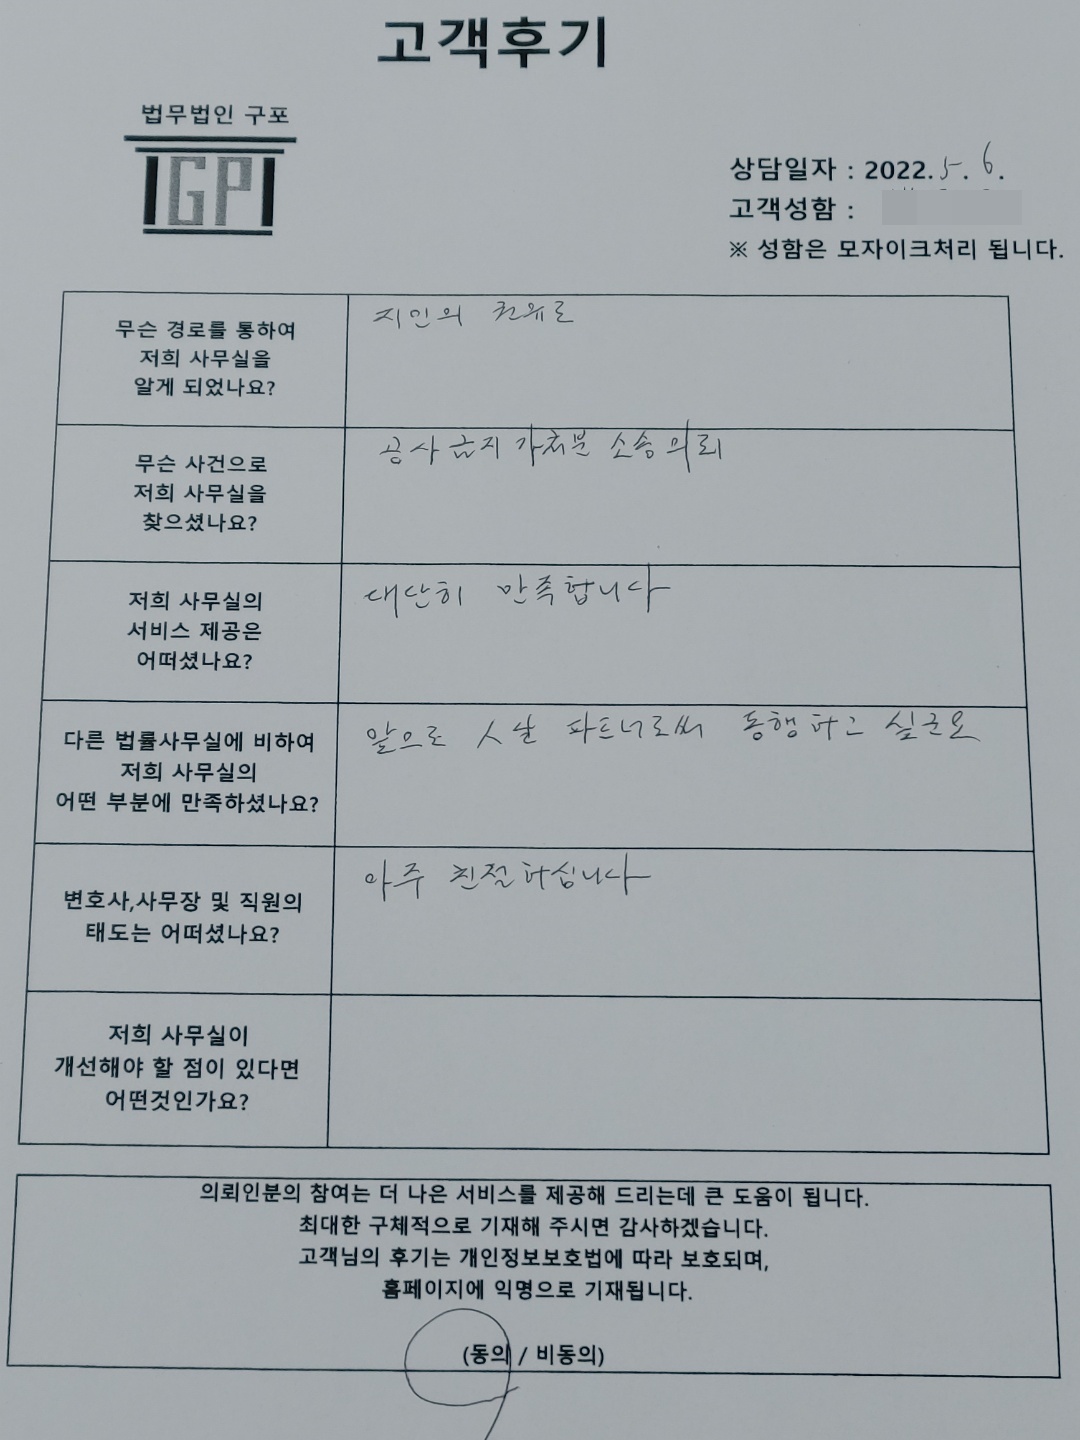 고객후기
법무법인 구포
GP
상담일자 : 2022. 5. 6.
고객성함 :
※ 성함은 모자이크처리 됩니다.
무슨 경로를 통하여
저희 사무실을
알게 되었나요?
지인의 권유로
무슨 사건으로
저희 사무실을
찾으셨나요?
공사 금지 가처분 소송 의뢰
저희 사무실의
서비스 제공은
어떠셨나요?
대단히 만족합니다
다른 법률사무실에 비하여
저희 사무실의
어떤 부분에 만족하셨나요?
앞으로 파트너로써 동행하고 싶군요
변호사,사무장 및 직원의
태도는 어떠셨나요?
아주 친절하십니다
저희 사무실이
개선해야 할 점이 있다면
어떤것인가요?
의뢰인분의 참여는 더 나은 서비스를 제공해 드리는데 큰 도움이 됩니다.
최대한 구체적으로 기재해 주시면 감사하겠습니다.
고객님의 후기는 개인정보보호법에 따라 보호되며,
홈페이지에 익명으로 기재됩니다.
(동의 / 비동의)